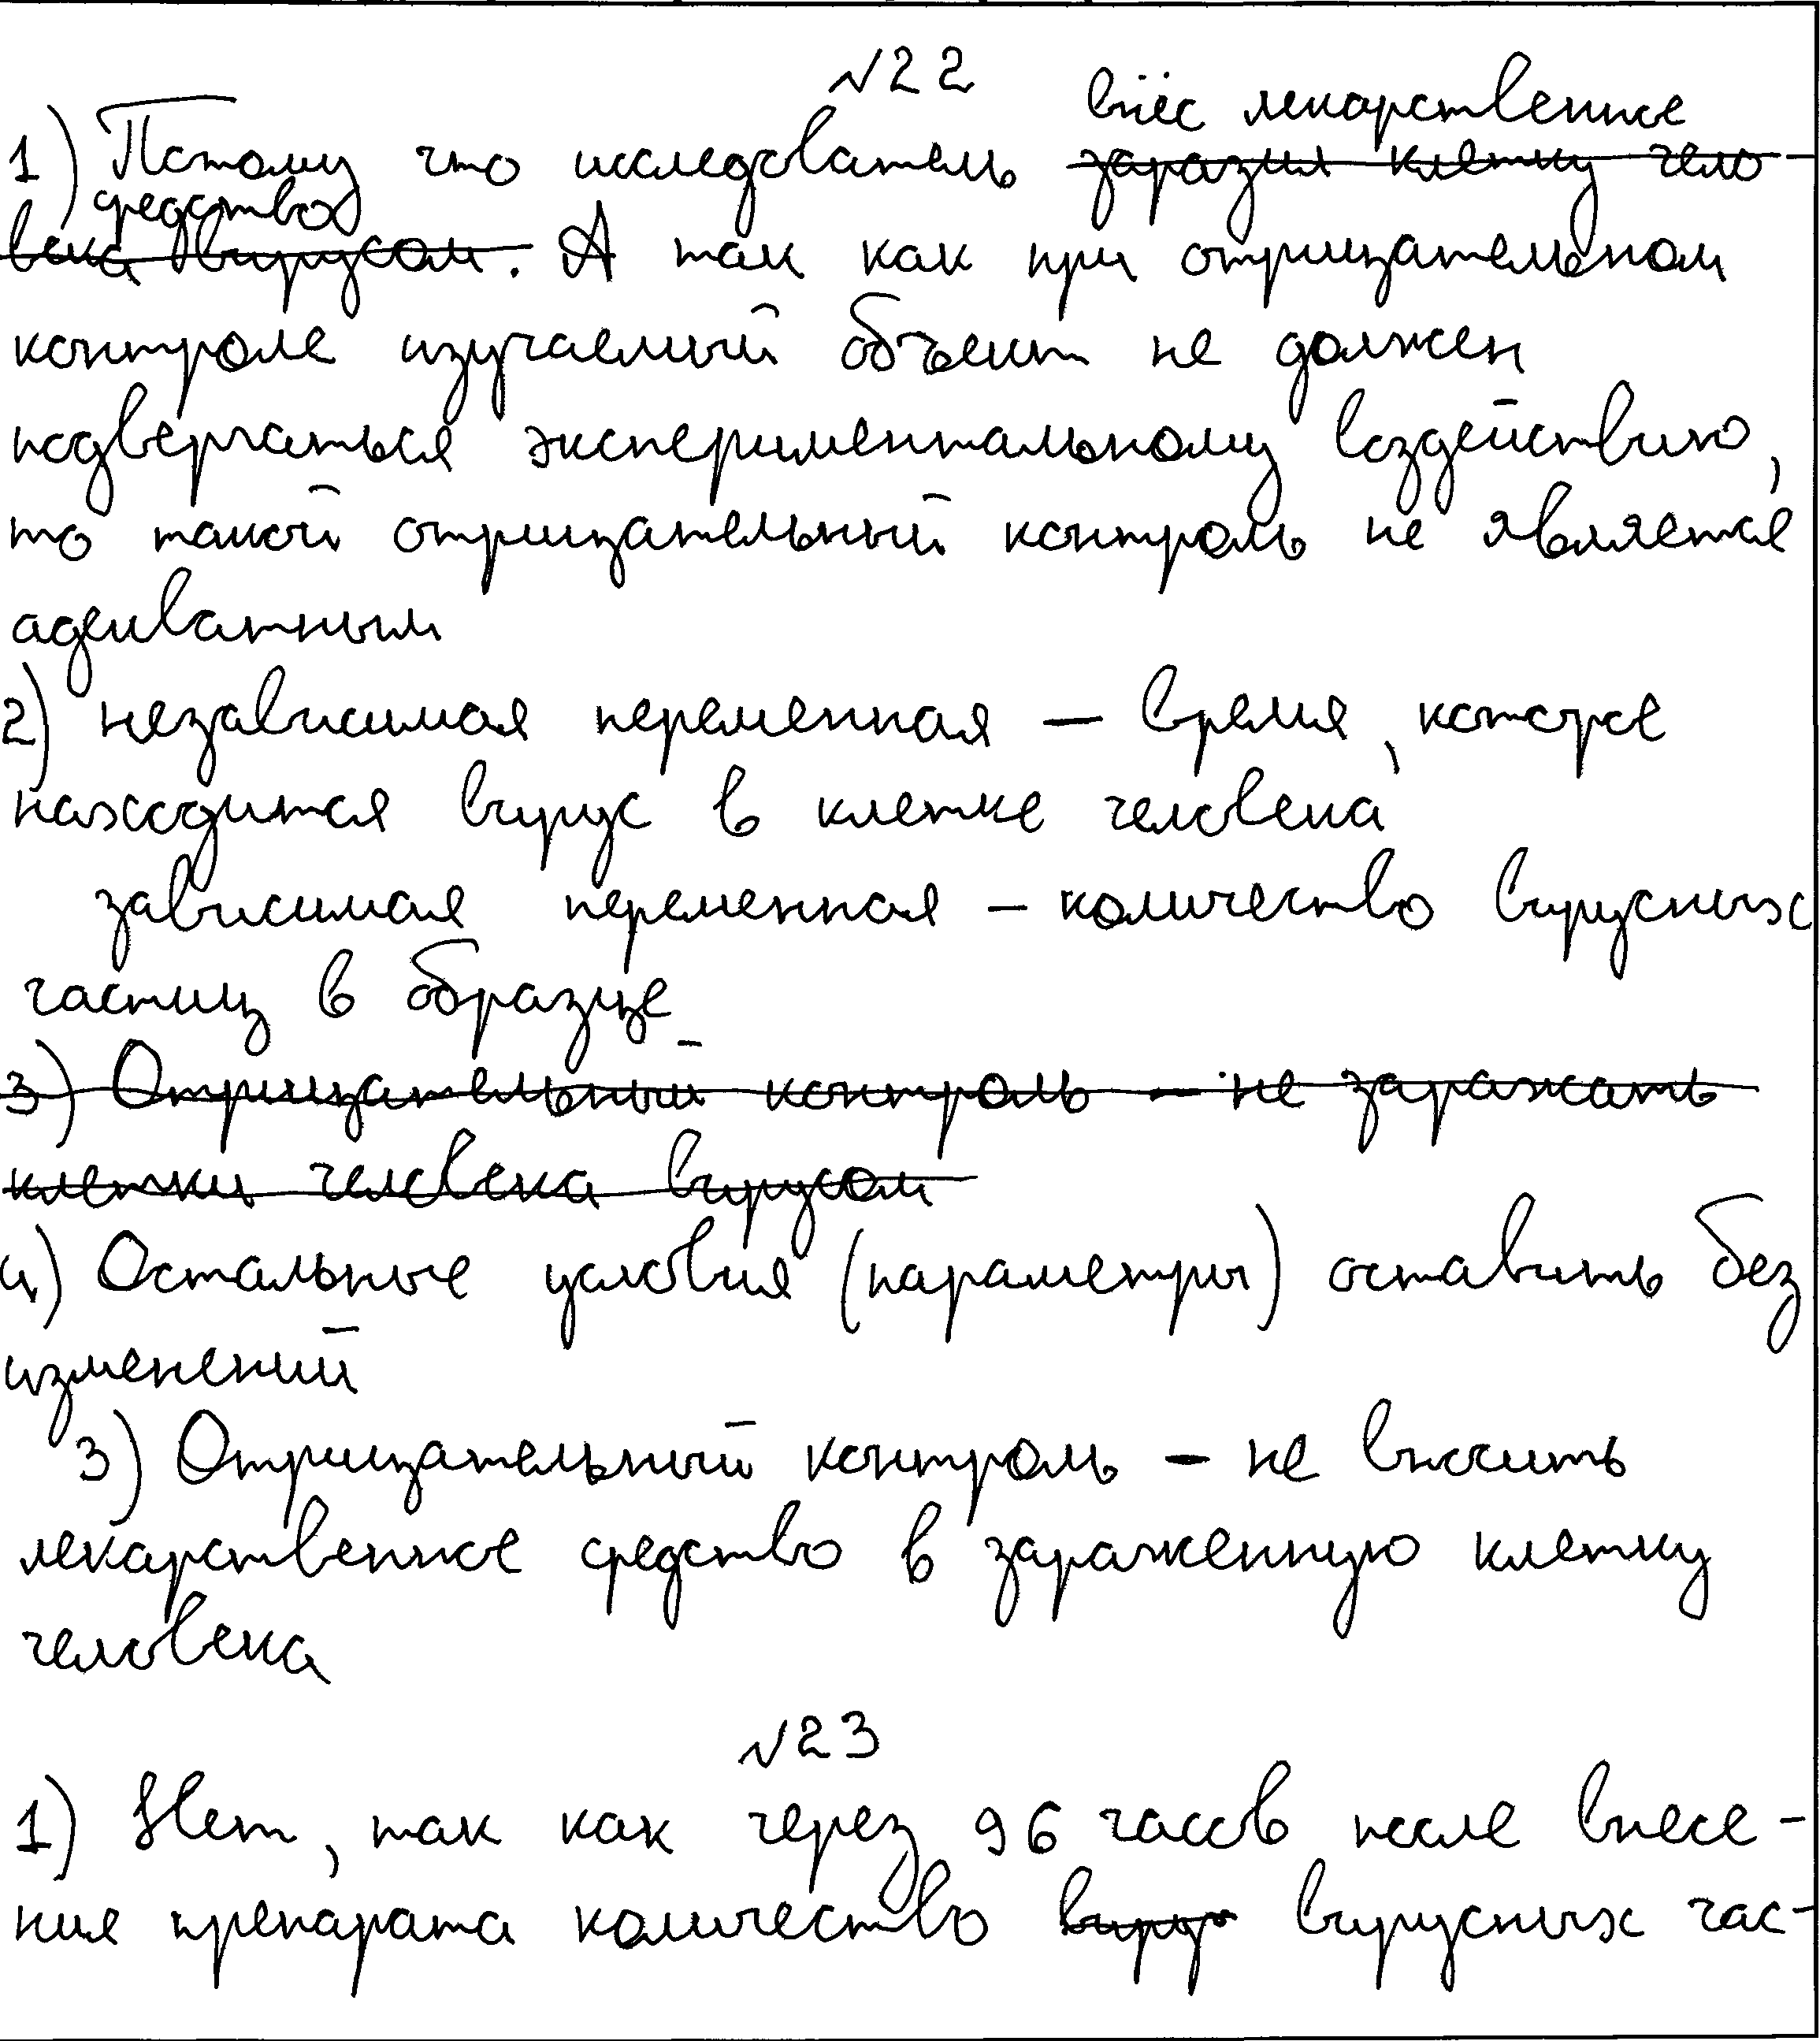 №22
внёс лекарственное
1) Потому что исследователь заразил клетку чело-
средство
века вирусом. А так как при отрицательном
контроле изучаемый объект не должен
подвергаться экспериментальному воздействию,
то такой отрицательный контроль не является
адекватным
2) независимая переменная – время, которое
находится вирус в клетке человека
зависимая переменная – количество вирусных
частиц в образце
3) Отрицательный контроль – не заражать
клетки человека вирусом
4) Остальные условия (параметры) оставить без
изменений
3) Отрицательный контроль – не вносить
лекарственное средство в зараженную клетку
человека
№23
1) Нет, так как через 96 часов после внесе-
ния препарата количество вирус вирусных час-